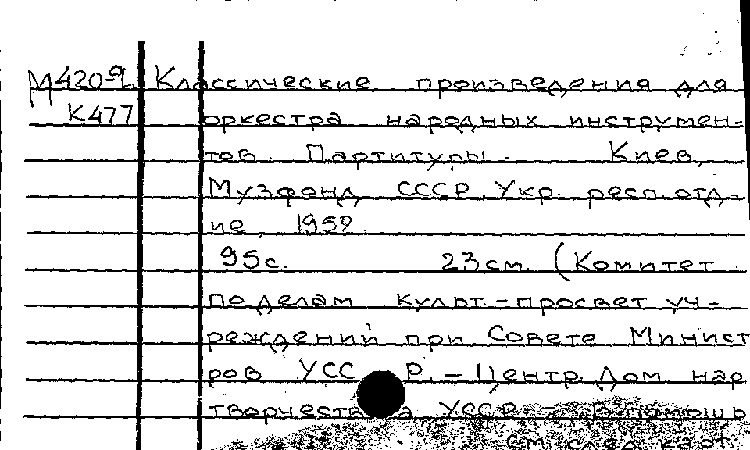 М420-9 Классические произведения для
К477 оркестра народных инструмен-
тов. Партитуры. Киев,
Музфонд СССР. Укр. респ. отд-
ние, 1959
95с. 23см. (Комитет
по делам культ.-просвет. уч-
реждений при Совете Минист
ров УССР. - Центр. Дом нар
творчества УССР. - В помощь
см. след. карт.